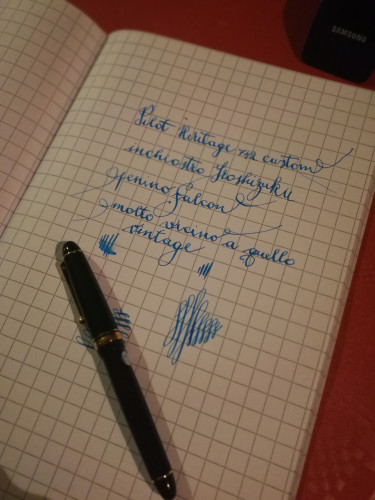 SAMSUNG
Pilot Heritage custom
inchiostro Iroshizuku
penino falcon
molto vicino a quello
vintage